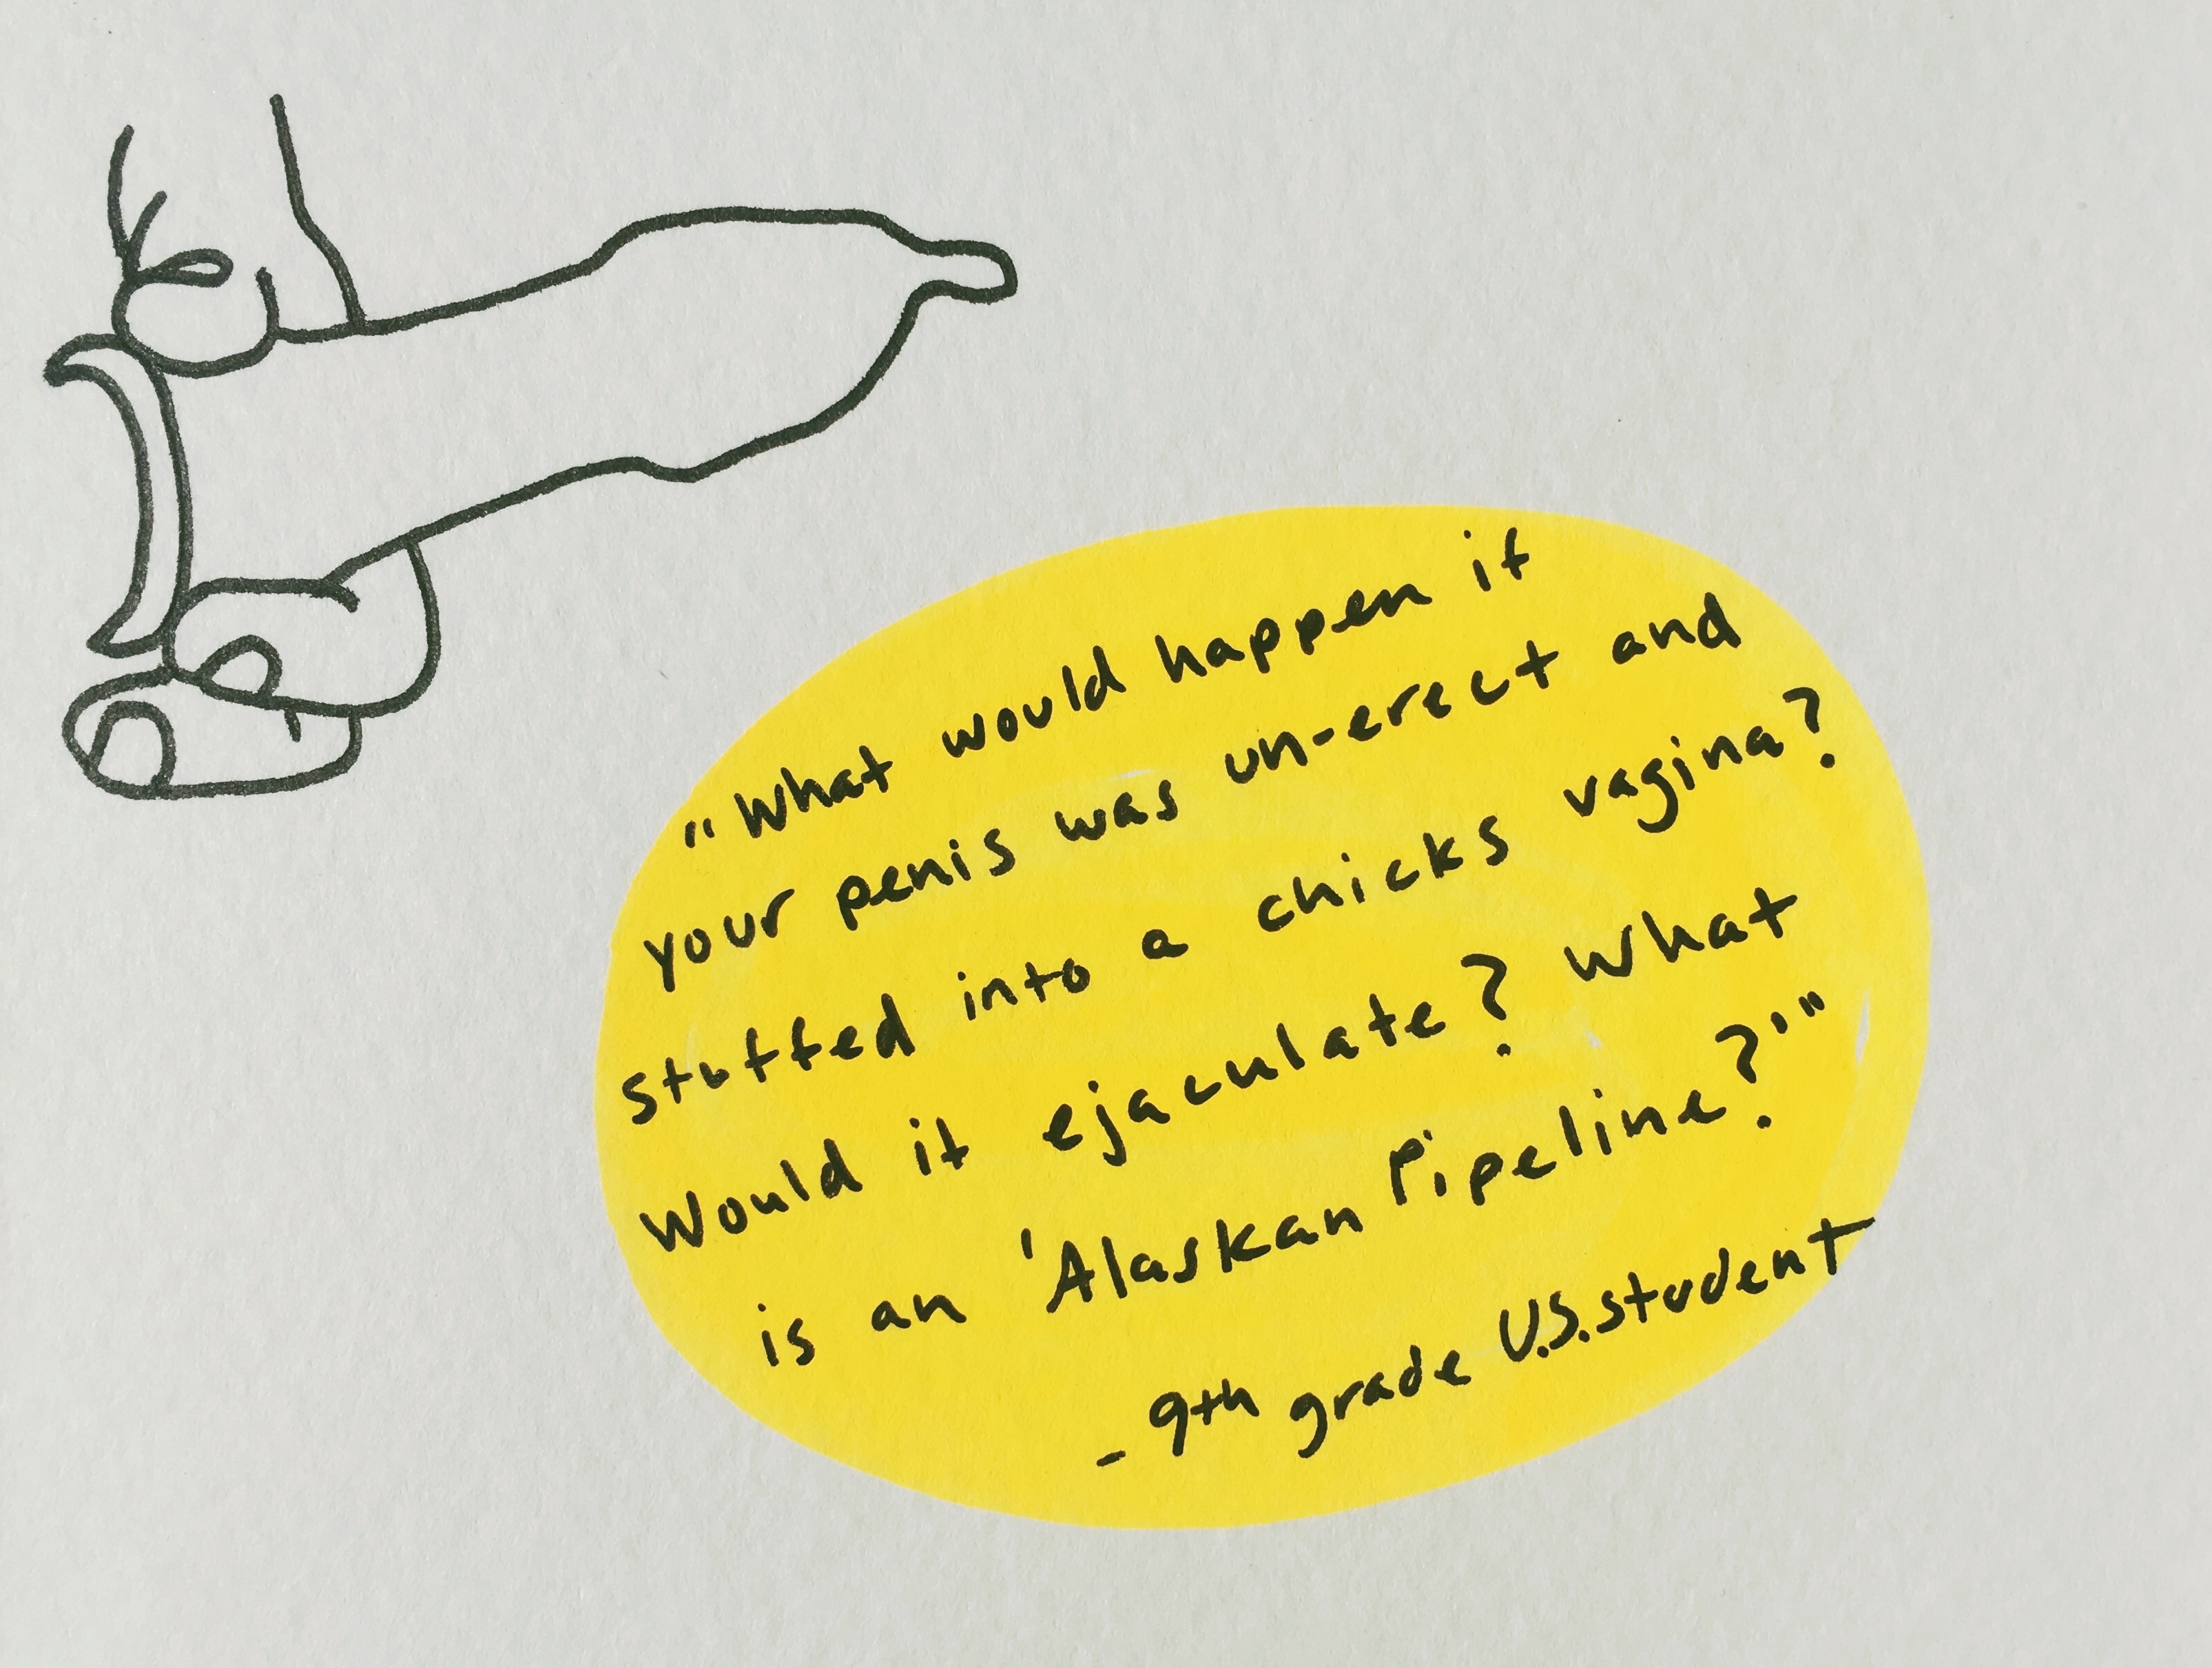 "What would happen if
your penis was un-erect and
stuffed into a chicks vagina?
Would it ejaculate? What
is an 'Alaskan Pipeline?'"
- 9th grade U.S. student